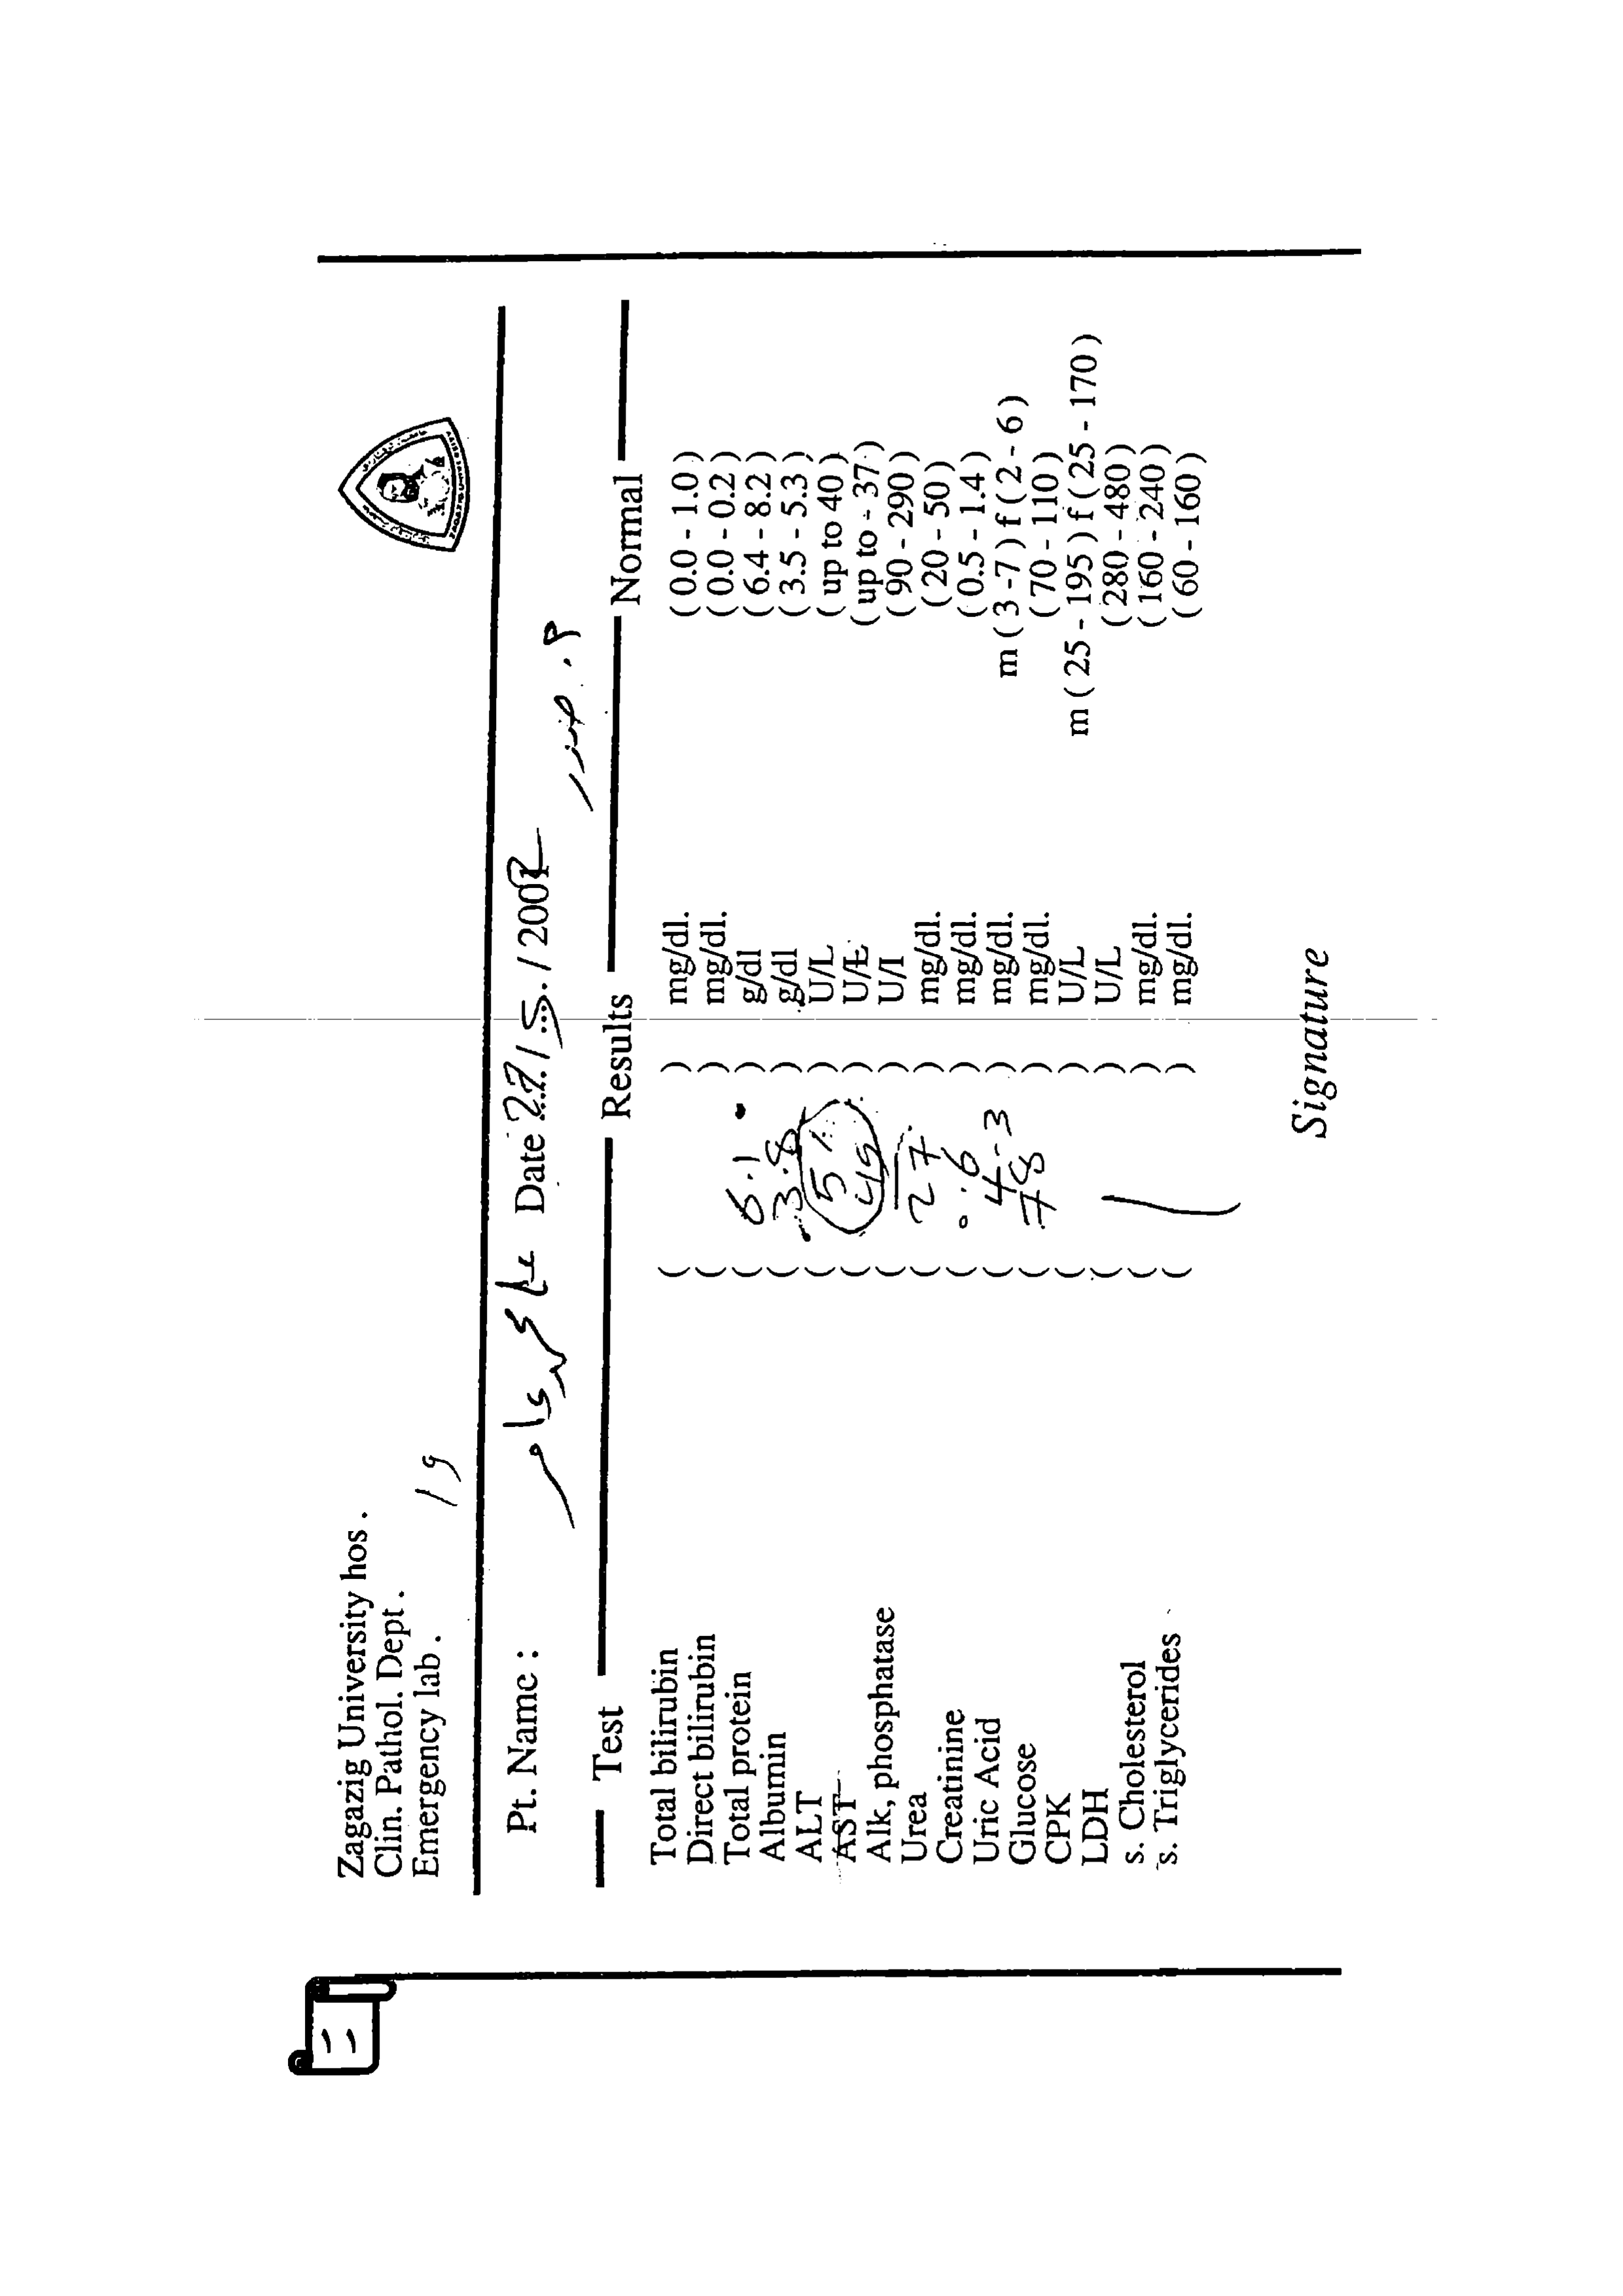 Zagazig University hos .
Clin. Pathol. Dept .
Emergency lab .
19
Pt. Name : Date 22 / 5 / 2002
Test Results Normal
Total bilirubin ( ) mg/dl. ( 0.0 - 1.0 )
Direct bilirubin ( ) mg/dl. ( 0.0 - 0.2 )
Total protein ( 6.1 ) g/dl ( 6.4 - 8.2 )
Albumin ( 3.8 ) g/dl ( 3.5 - 5.3 )
ALT ( 51 ) U/L ( up to 40 )
AST ( 45 ) U/L ( up to - 37 )
Alk, phosphatase ( ) U/I ( 90 - 290 )
Urea ( 27 ) mg/dl. ( 20 - 50 )
Creatinine ( 0.6 ) mg/dl. ( 0.5 - 1.4 )
Uric Acid ( 4.3 ) mg/dl. m ( 3 -7 ) f ( 2 - 6 )
Glucose ( 78 ) mg/dl. ( 70 - 110 )
CPK ( ) U/L m ( 25 - 195 ) f ( 25 - 170 )
LDH ( ) U/L ( 280 - 480 )
s. Cholesterol ( ) mg/dl. ( 160 - 240 )
s. Triglycerides ( ) mg/dl. ( 60 - 160 )
Signature